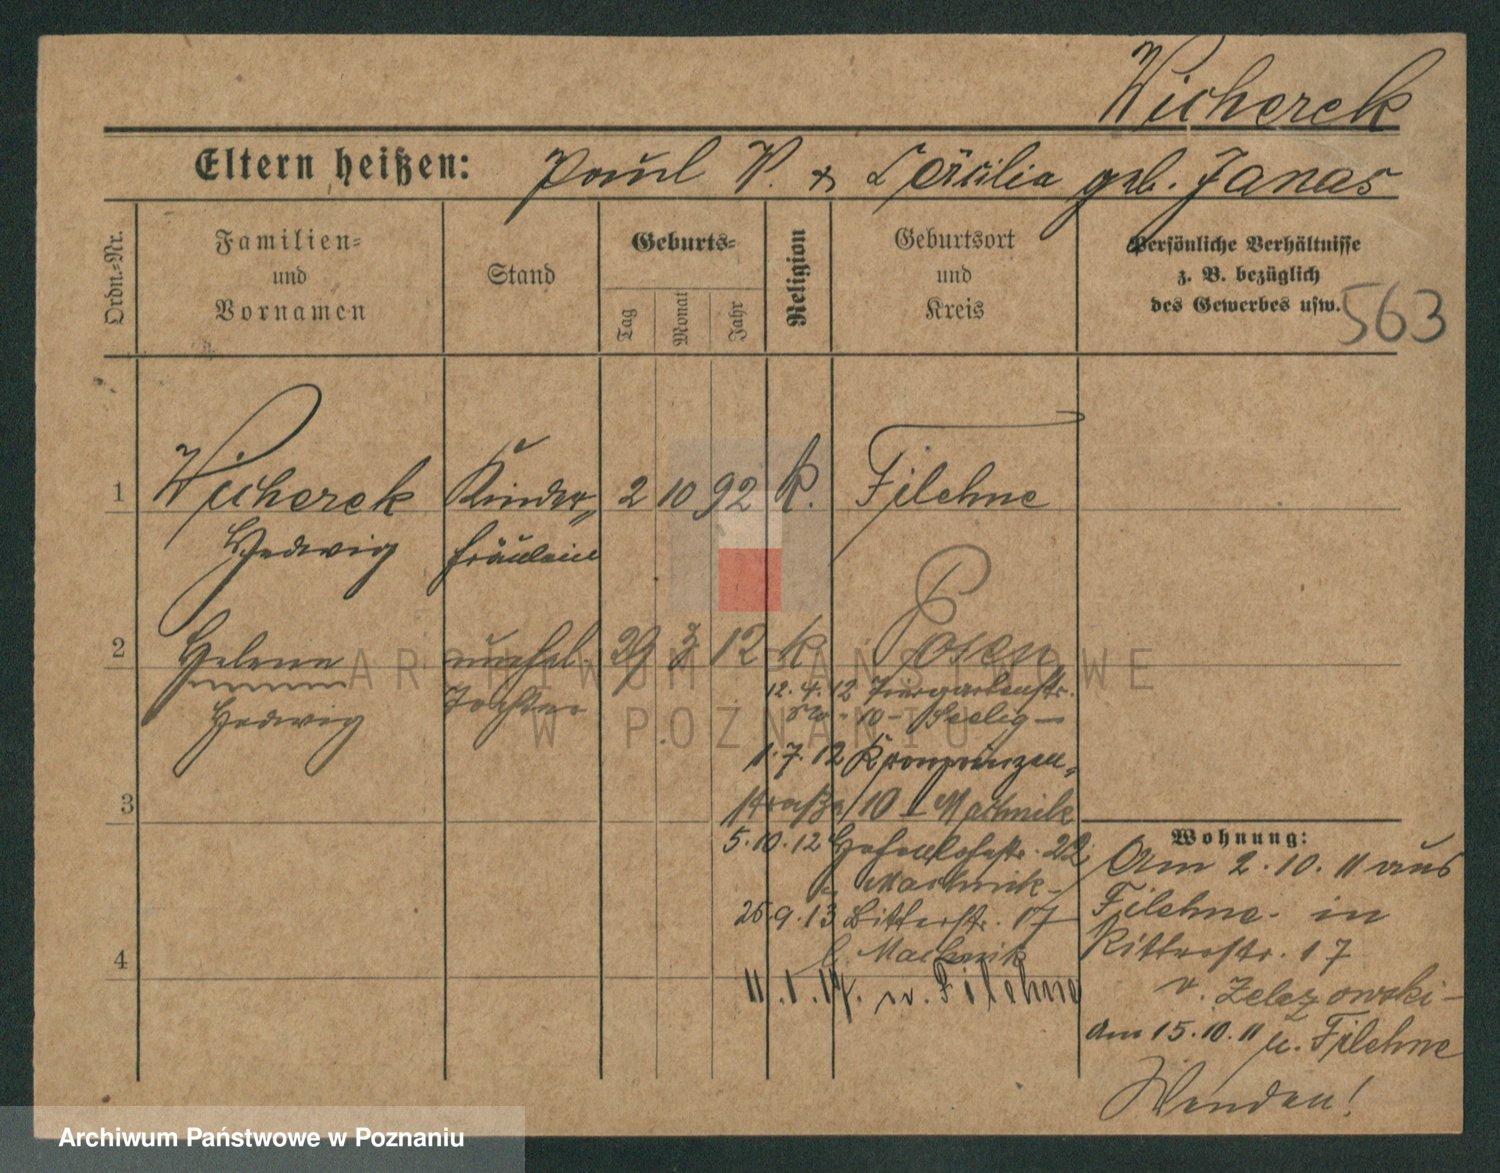 Wicherek
Eltern heißen: Paul W. & Cäcilia geb. Janas
Ordn.-Nr.
Familien-
und
Vornamen
Stand
Geburts-
Tag
Monat
Jahr
Religion
Geburtsort
und
Kreis
Persönliche Verhältnisse
z. B. bezüglich
des Gewerbes usw.
563
1 Wicherek Kinder- 2 10 92 k. Filehne
Hedwig fräulein
2 Helene unehel. 29 3 12 k. Posen
Hedwig Tochter
12.4.12 Tiergartenstr.
10 - Seelig -
1.7.12 Kronprinzen-
straße 10 I Machnik
5.10.12 Hohenlohestr. 22
b. Machnik -
26.9.13 Ritterstr. 17
b. Machnik
11.1.14. n. Filehne
3
4
Wohnung:
Am 2.10.11 aus
Filehne in
Ritterstr. 17
v. Zelezowski -
Am 15.10.11 n. Filehne
Wenden!
ARCHIWUM PAŃSTWOWE
W POZNANIU
Archiwum Państwowe w Poznaniu